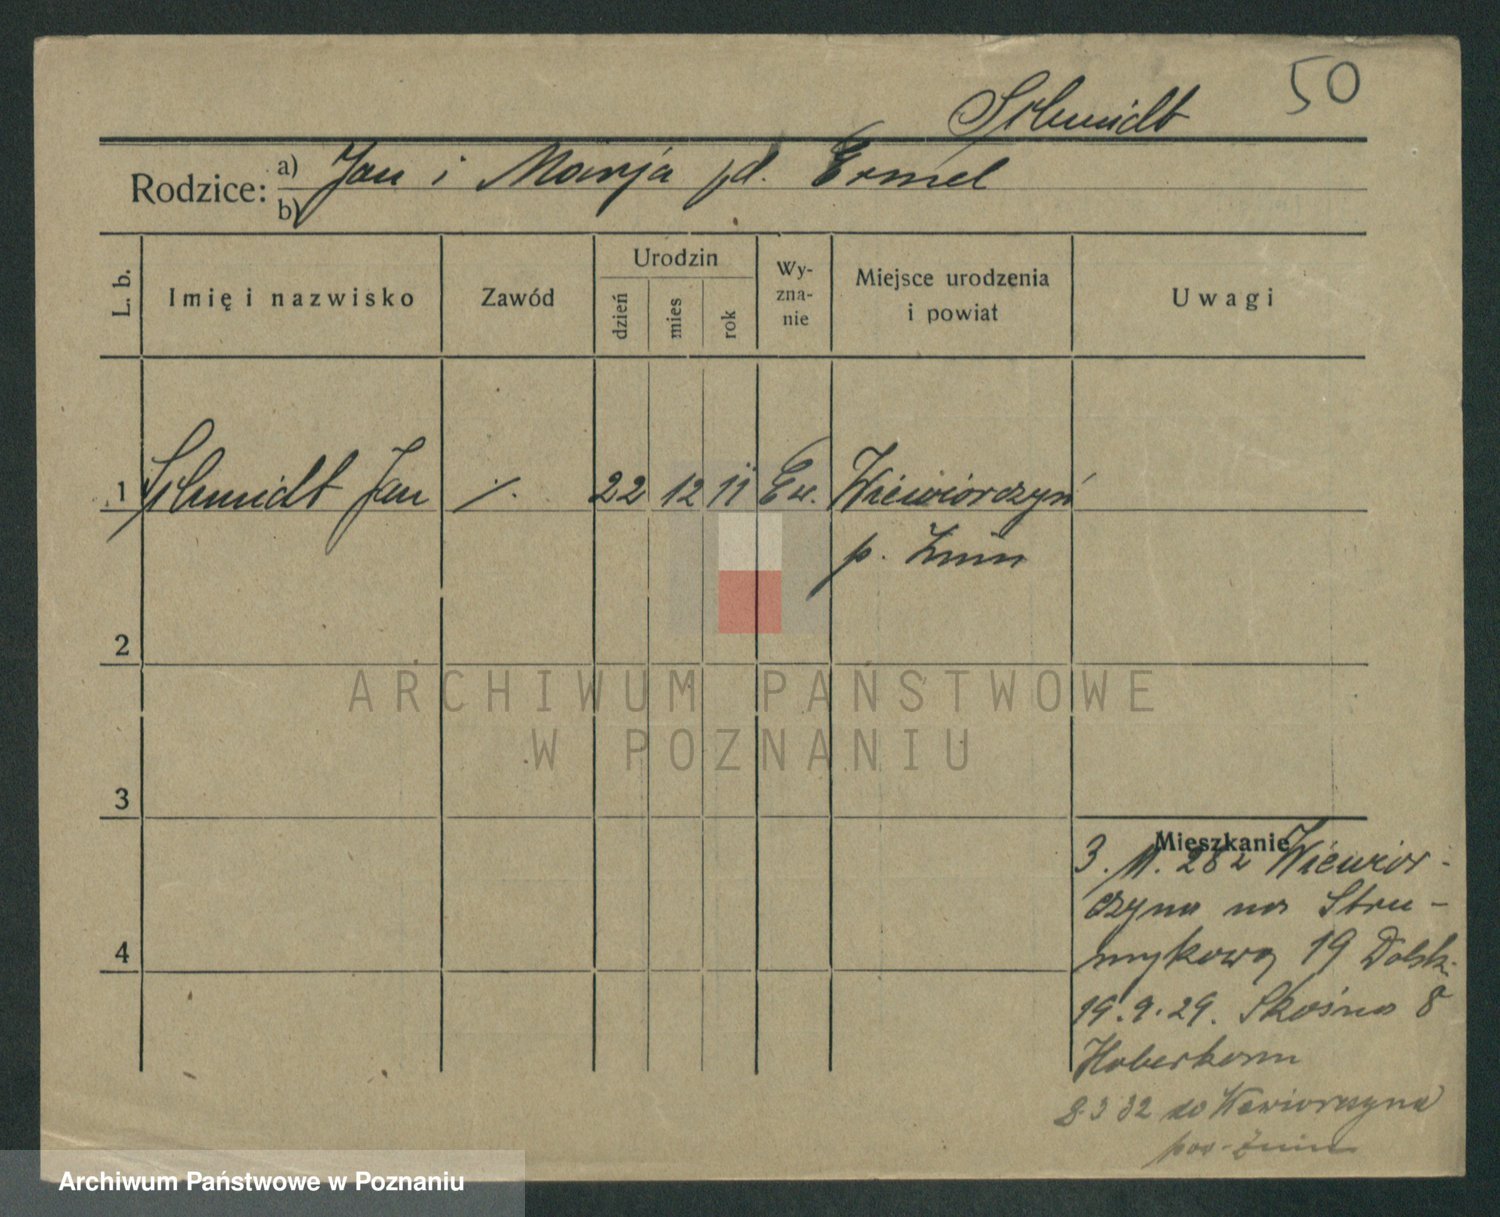 50
Schmidt
Rodzice: a) Jan i Marja pd. Ermel
b)
L. b. Imię i nazwisko Zawód Urodzin dzień mies rok Wy-zna-nie Miejsce urodzenia i powiat Uwagi
1 Schmidt Jan ./. 22 12 11 Ew. Wiewiorczyń
p. Żnin
2
ARCHIWUM PAŃSTWOWE
W POZNANIU
3
Mieszkanie
3. 11. 282 Wiewior-
czyna na Stru-
mykową 19 Dolsk.
19.9.29. Skośna 8
Haberkorn
8 3 32 do Wewiorczyna
pow. Żnin
4
Archiwum Państwowe w Poznaniu